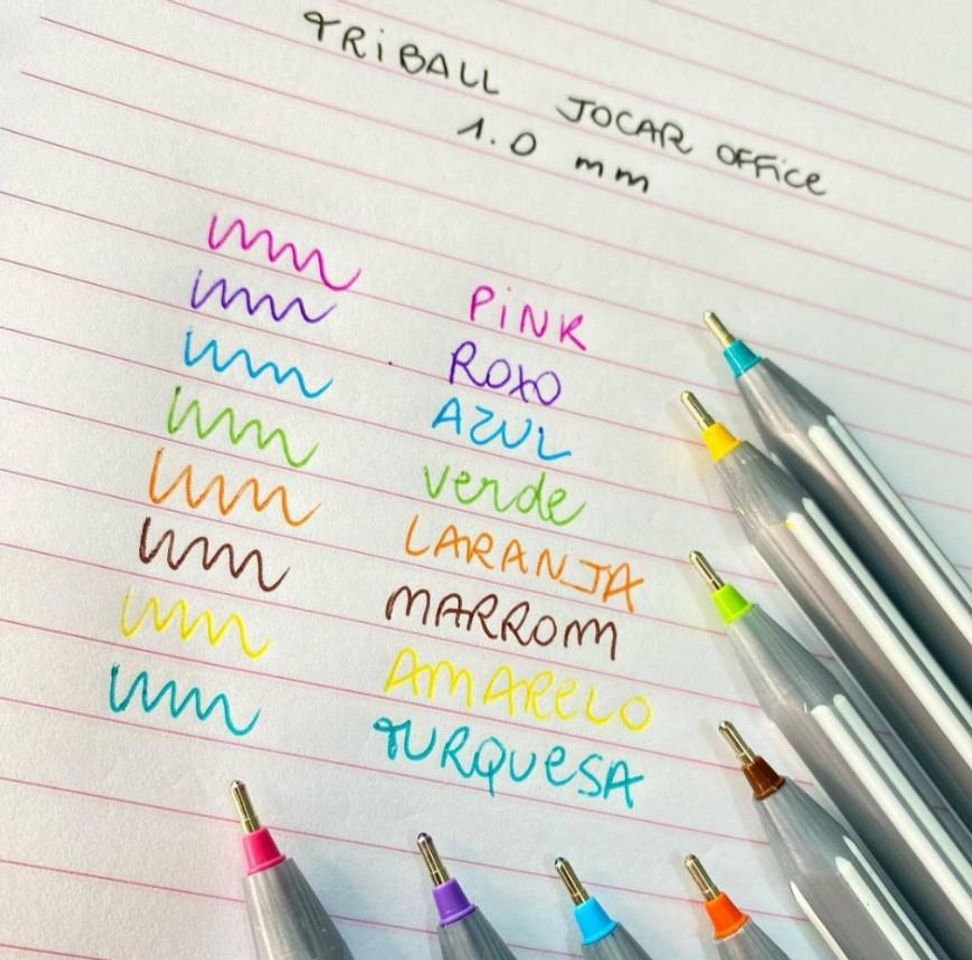 TRIBALL JOCAR OFFICE
1.0 mm
PINK
ROXO
AZUL
verde
LARANJA
MARROM
AMARELO
TURQUESA